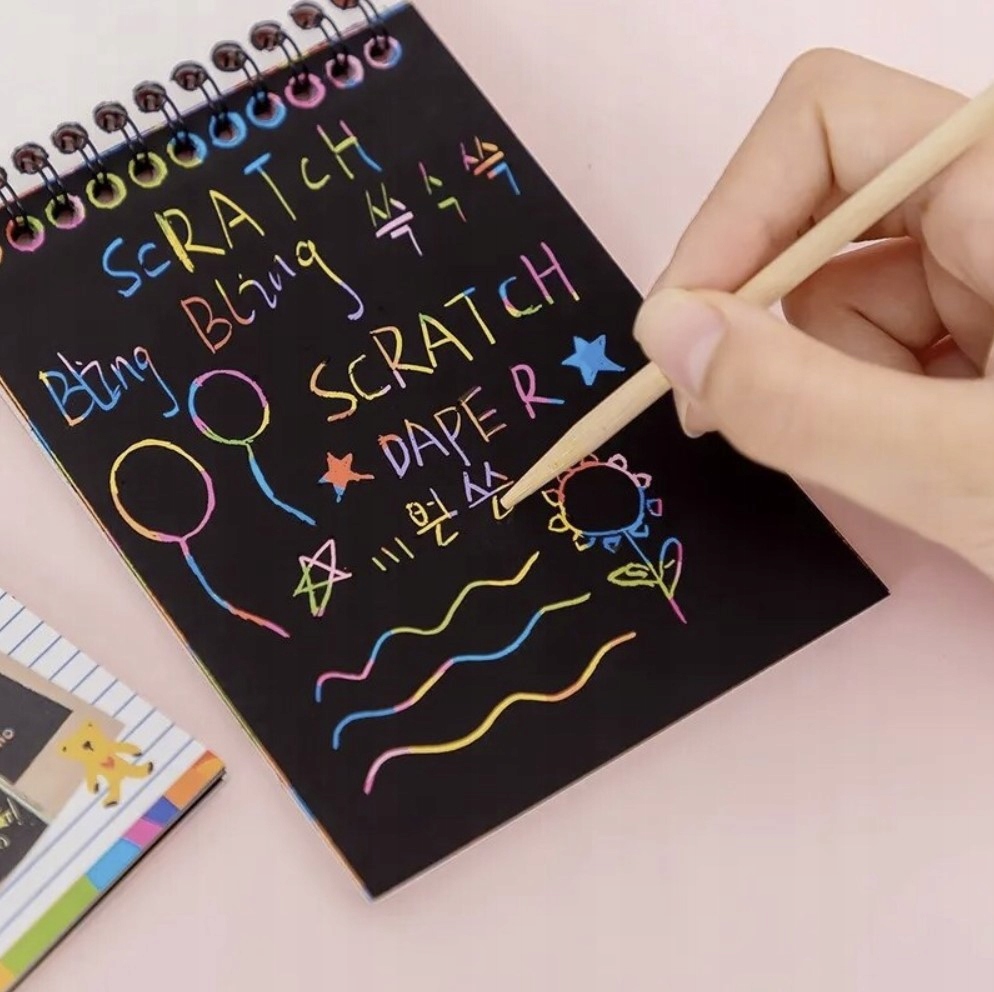 ScRATcH
쓱 슥 쓱
Bling
Bling
ScRATcH
DAPER